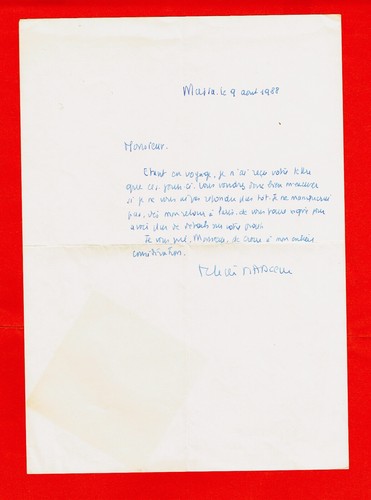 Massa, le 9 août 1988
Monsieur.
Etant en voyage, je n'ai reçu votre lettre
que ces jours ci. Vous voudrez donc bien m'excuser
si je ne vous ai pas répondu plus tôt. Je ne manquerai
pas, dès mon retour à Paris, de vous
avoir plus de détails sur votre
Je vous prie, Monsieur, de croire à mon entière
considération.